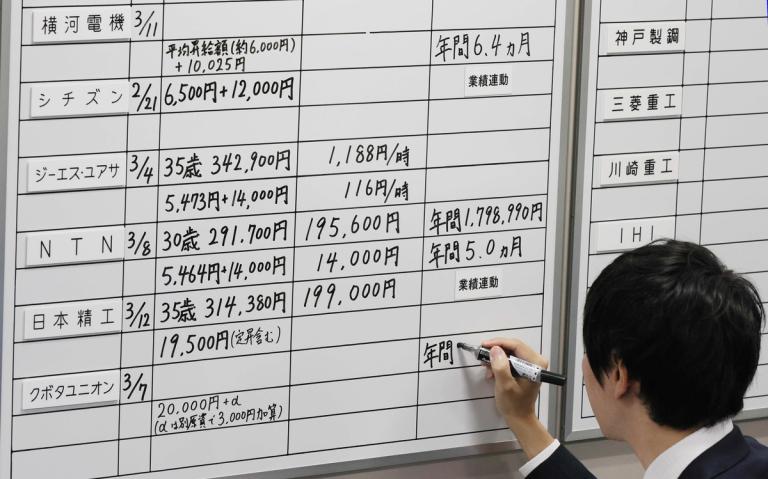 横河電機 3/11
平均昇給額(約6,000円)
+10,025円 年間6.4ヵ月
シチズン 2/21 6,500円+12,000円 業績連動
ジーエス・ユアサ 3/4 35歳 342,900円 1,188円/時
5,473円+14,000円 116円/時
NTN 3/8 30歳 291,700円 195,600円 年間1,798,990円
5,464円+14,000円 14,000円 年間5.0ヵ月
日本精工 3/12 35歳 314,380円 199,000円 業績連動
19,500円(定昇含む)
クボタユニオン 3/7 年間
20,000円+α
(αは別原資で3,000円加算)
神戸製鋼
三菱重工
川崎重工
IHI